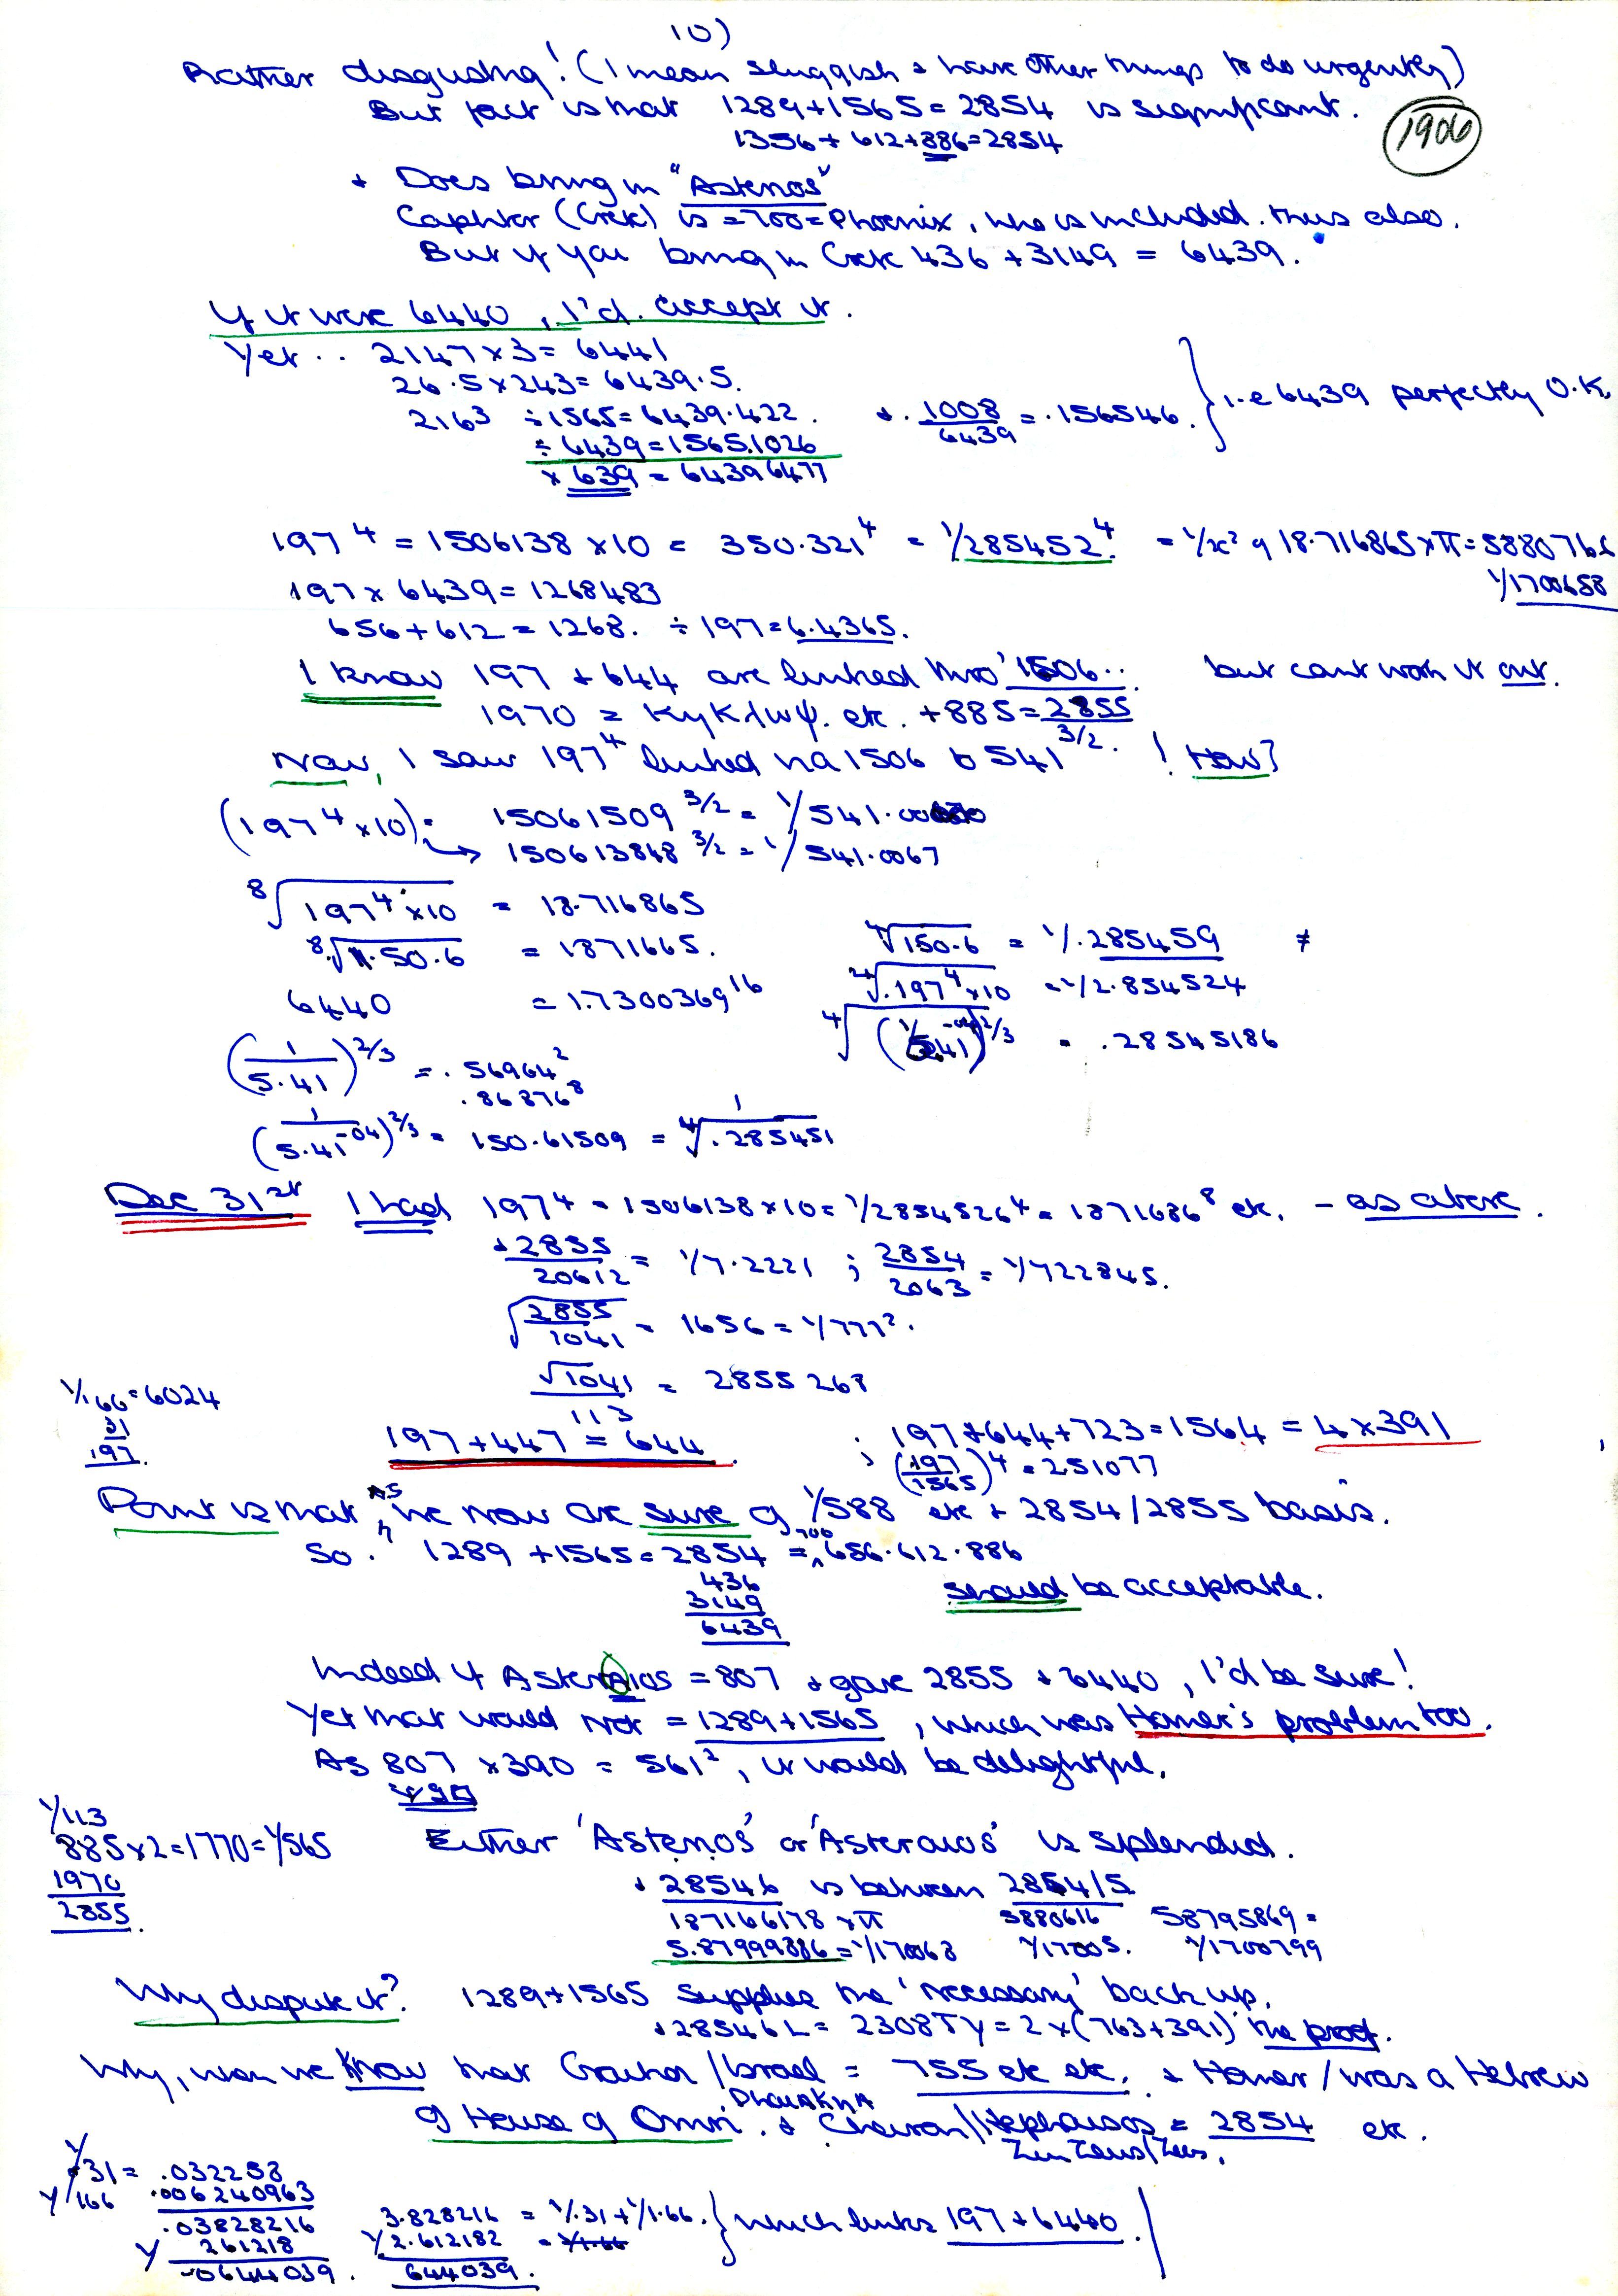 10)
Rather disgusting! (I mean sluggish & have other things to do urgently)
But fact is that 1289+1565=2854 is significant.
1906
1356+612+886=2854
+ Does bring in "Asterios"
Caphtor (Crete) is =700=Phoenix, who is included thus also.
But if you bring in Crete 436+3149 = 6439.
If it were 6440, I'd accept it.
Yet.. 2147×3=6441
26.5×243=6439.5.
216³ ÷1565=6439.422. + .1008/6439=.156546. } i.e 6439 perfectly O.K.
÷6439=1565.1026
×639=64396477
197⁴ = 1506138×10 = 350.321⁴ = 1/285452⁴. = 1/x² of 18.716865×π=5880766
1/1700658
197×6439=1268483
656+612=1268. ÷197=6.4365.
I know 197 + 644 are linked thro' 1506.. but cant work it out.
1970 = Κυκλωψ. etc. +885=2855
Now, I saw 197⁴ linked via 1506 to 541^3/2. ! How?
(197⁴×10)= 15061509^3/2 = 1/541.00
→ 150613848^3/2 = 1/541.0067
⁸√197⁴×10 = 18.716865
⁸√1.50.6 = 1871665. ⁴√150.6 = 1/.285459 ≠
6440 = 1.7300369¹⁶ ⁴√.197⁴×10 = 1/2.854524
(1/5.41)^2/3 = .56964² ⁴√(1/541^-04)^2/3 = .28545186
.86876⁸
(1/5.41^-04)^2/3 = 150.61509 = 1/⁴√.285451
Dec 31st I had 197⁴ = 1506138×10=1/2854526⁴=1871686⁸ etc. - as above.
+2855/20612 = 1/7.2221 ; 2854/2063 = 1/722845.
√2855/1041 = 1656 = 1/777².
√1041/113 = 2855268
1/166=6024
31
.197.
197+447=644. ; 197+644+723=1564=4×391
; (197/1565)⁴=251077
Point is that, as we now are sure of 1/588 etc + 2854/2855 basis.
So. 1289+1565=2854 = 700 656.612.886
436
3149
6439
should be acceptable.
Indeed if Asteraios =807 & gave 2855 + 6440, I'd be sure!
Yet that would not = 1289+1565, which was Homer's problem too.
As 807 ×390 = 561², it would be delightful.
1/113
885×2=1770=1/565
1970
2855.
Either 'Asterios' or 'Asteraios' is splendid.
+ 28546 is between 2854/5
187166178×π 5880616 58795869=
5.87999886=1/170068 1/17005. 1/1700799
Why dispute it? 1289+1565 supplies the 'necessary' back up.
+28546L= 2308TY=2×(763+391) the proof.
Why, when we know that /Israel = 755 etc etc. & Homer/was a Hebrew
of House of Omri. & /Hephaistos = 2854 etc.
Zeus/Zeus.
1/31= .032258
1/166 .006240963
.03828216
1/ 261218
-0644039.
3.828216 = 1/.31+1/1.66.
1/2.612182 = 1/1.66
644039.
} which links 197+6440.